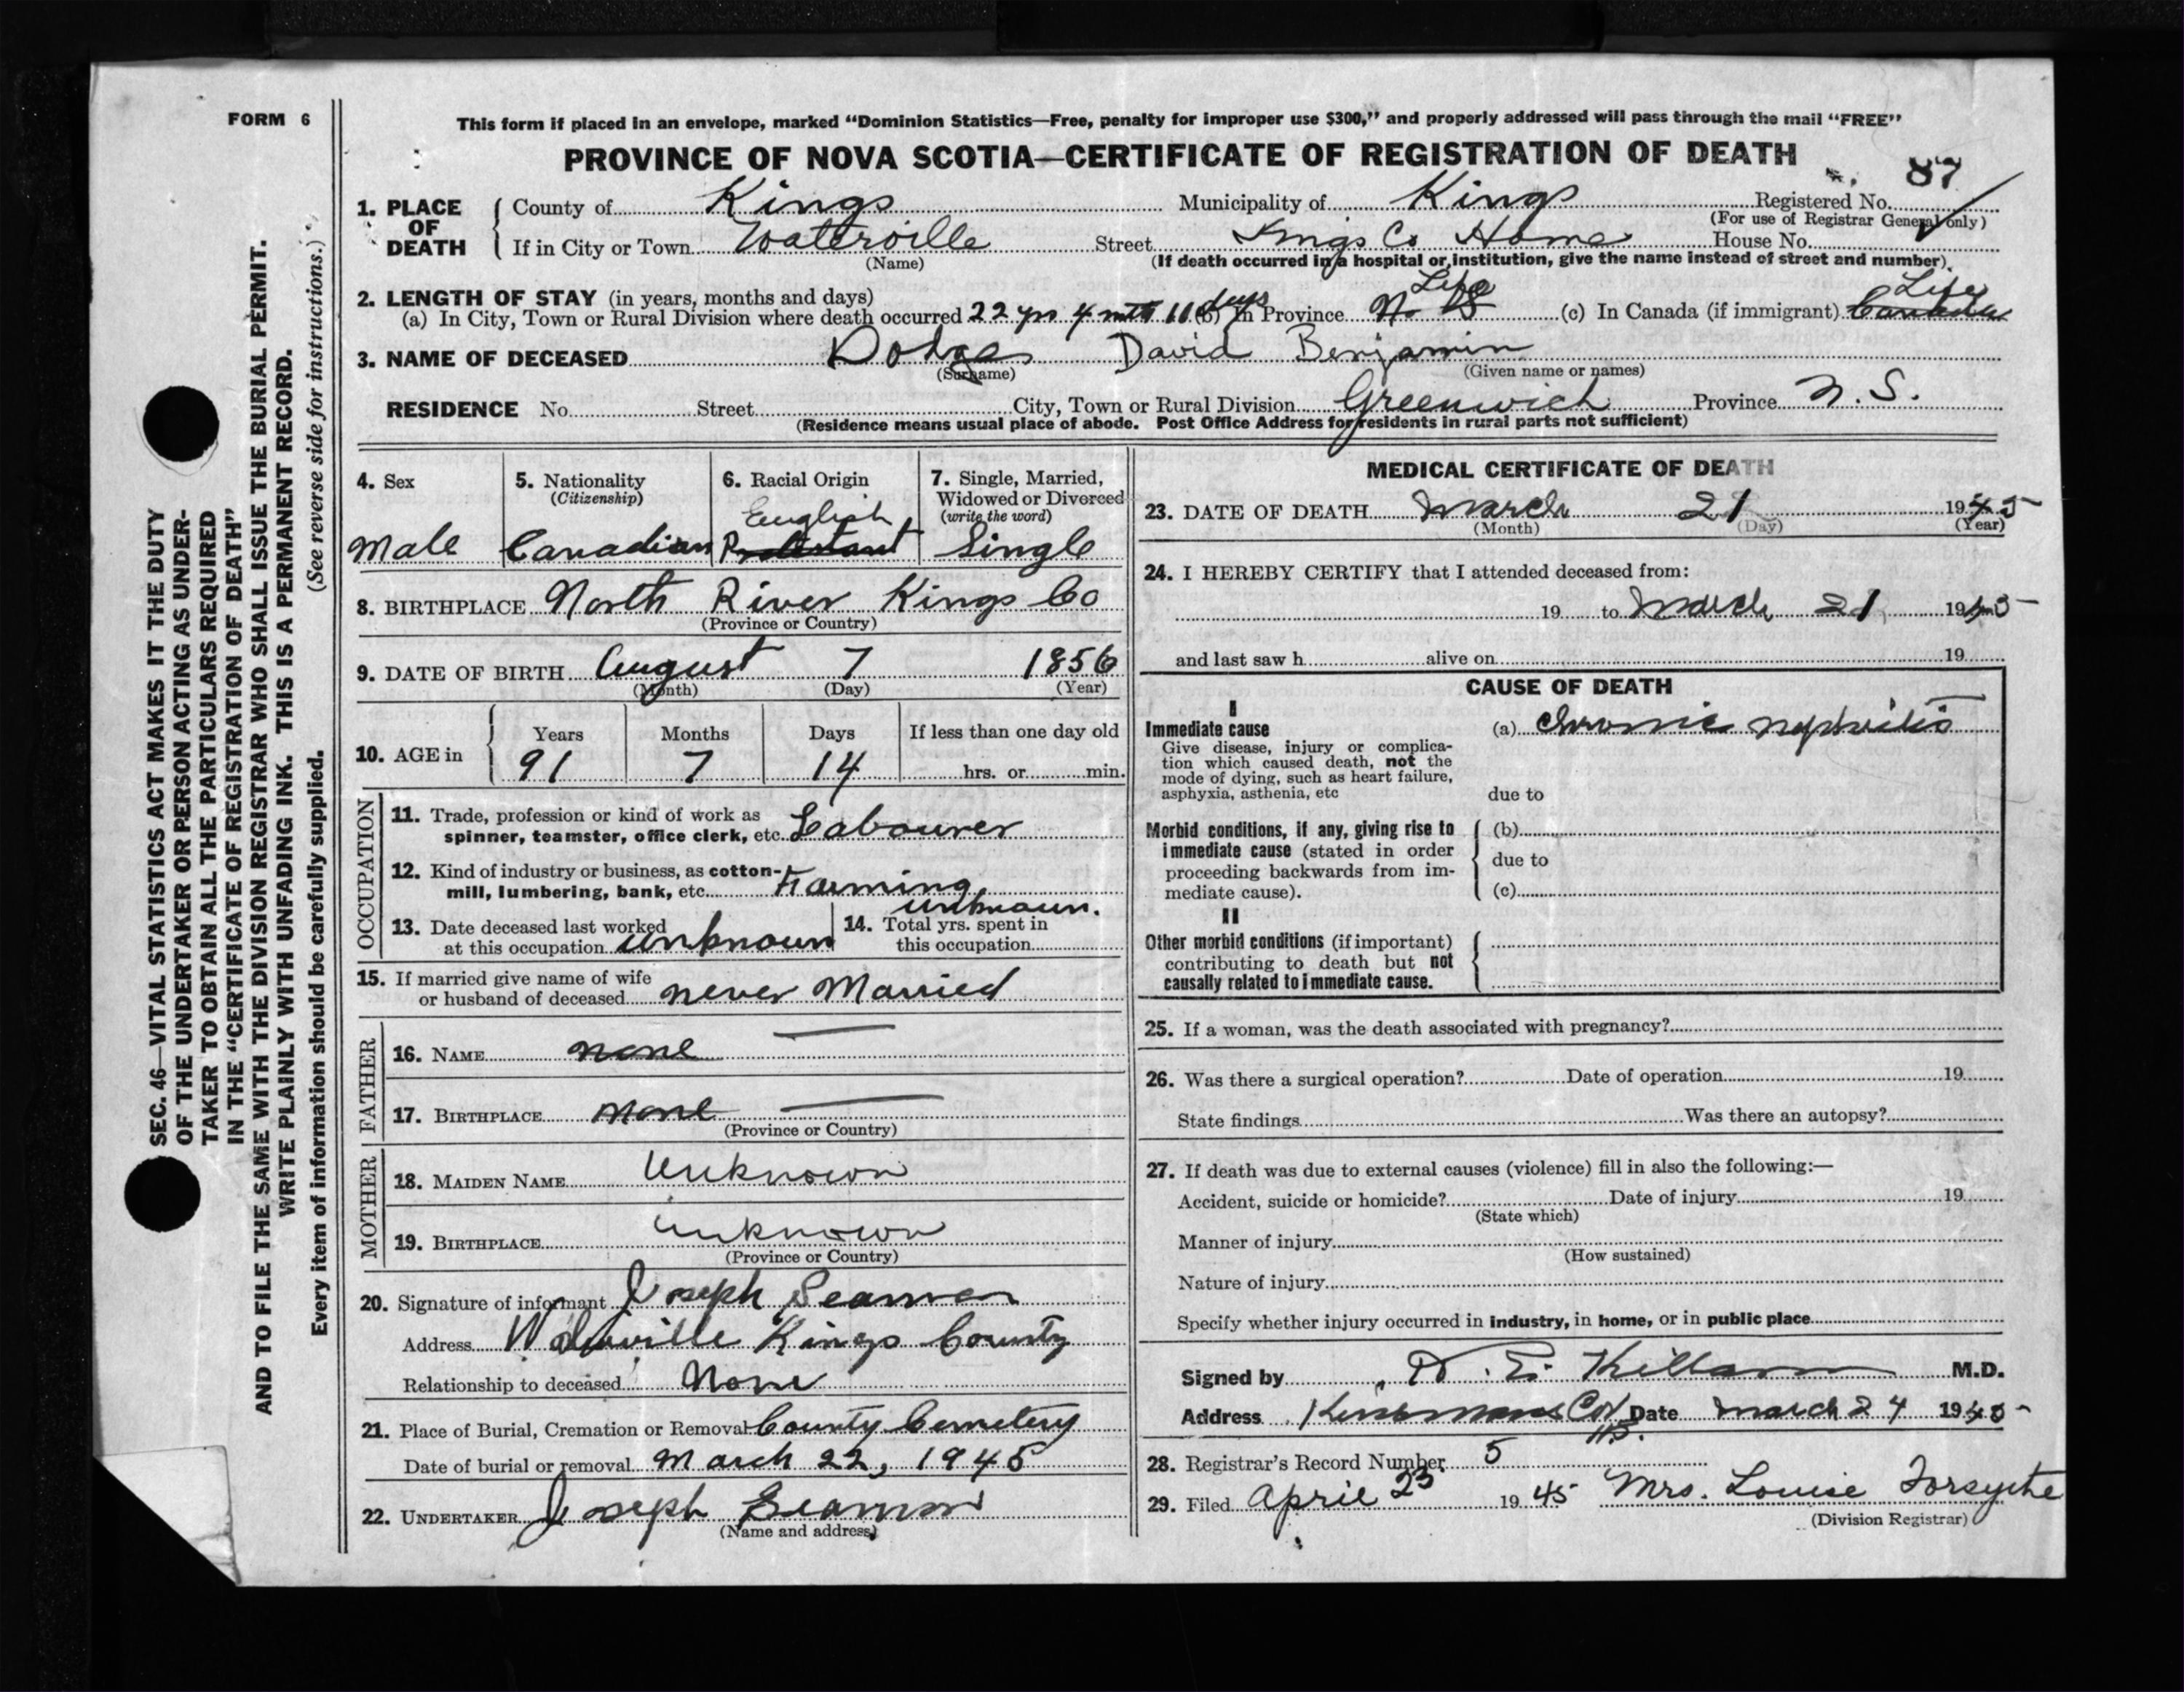 FORM 6
This form if placed in an envelope, marked “Dominion Statistics—Free, penalty for improper use $300,” and properly addressed will pass through the mail “FREE”
PROVINCE OF NOVA SCOTIA—CERTIFICATE OF REGISTRATION OF DEATH
87
1. PLACE OF DEATH County of Kings Municipality of Kings Registered No.
(For use of Registrar General only)
If in City or Town Waterville Street Kings Co Home House No.
(Name) (If death occurred in a hospital or institution, give the name instead of street and number)
2. LENGTH OF STAY (in years, months and days) Life Life
(a) In City, Town or Rural Division where death occurred 22 yrs 4 mths 11 days (b) In Province N. S (c) In Canada (if immigrant) Canada
3. NAME OF DECEASED Dodge David Benjamin
(Surname) (Given name or names)
RESIDENCE No. Street City, Town or Rural Division Greenwich Province N. S.
(Residence means usual place of abode. Post Office Address for residents in rural parts not sufficient)
SEC. 46—VITAL STATISTICS ACT MAKES IT THE DUTY
OF THE UNDERTAKER OR PERSON ACTING AS UNDER-
TAKER TO OBTAIN ALL THE PARTICULARS REQUIRED
IN THE “CERTIFICATE OF REGISTRATION OF DEATH”
AND TO FILE THE SAME WITH THE DIVISION REGISTRAR WHO SHALL ISSUE THE BURIAL PERMIT.
WRITE PLAINLY WITH UNFADING INK. THIS IS A PERMANENT RECORD.
Every item of information should be carefully supplied. (See reverse side for instructions.)
4. Sex
Male
5. Nationality
(Citizenship)
Canadian
6. Racial Origin
English
Protestant
7. Single, Married,
Widowed or Divorced
(write the word)
Single
8. BIRTHPLACE North River Kings Co
(Province or Country)
9. DATE OF BIRTH August 7 1856
(Month) (Day) (Year)
10. AGE in Years Months Days If less than one day old
91 7 14 hrs. or min.
OCCUPATION
11. Trade, profession or kind of work as
spinner, teamster, office clerk, etc. Labourer
12. Kind of industry or business, as cotton-
mill, lumbering, bank, etc. Farming
13. Date deceased last worked
at this occupation unknown
14. Total yrs. spent in
this occupation unknown.
15. If married give name of wife
or husband of deceased never Married
FATHER
16. NAME none
17. BIRTHPLACE none
(Province or Country)
MOTHER
18. MAIDEN NAME Unknown
19. BIRTHPLACE unknown
(Province or Country)
20. Signature of informant Joseph Seaman
Address Waterville Kings County
Relationship to deceased None
21. Place of Burial, Cremation or Removal County Cemetery
Date of burial or removal March 22, 1945
22. UNDERTAKER Joseph Seaman
(Name and address)
MEDICAL CERTIFICATE OF DEATH
23. DATE OF DEATH March 21 1945
(Month) (Day) (Year)
24. I HEREBY CERTIFY that I attended deceased from:
19 to March 21 1945
and last saw h alive on 19
CAUSE OF DEATH
I
Immediate cause (a) Chronic nephritis
Give disease, injury or complica-
tion which caused death, not the
mode of dying, such as heart failure,
asphyxia, asthenia, etc due to
Morbid conditions, if any, giving rise to (b)
immediate cause (stated in order due to
proceeding backwards from im-
mediate cause). (c)
II
Other morbid conditions (if important)
contributing to death but not
causally related to immediate cause.
25. If a woman, was the death associated with pregnancy?
26. Was there a surgical operation? Date of operation 19
State findings Was there an autopsy?
27. If death was due to external causes (violence) fill in also the following:—
Accident, suicide or homicide? Date of injury 19
(State which)
Manner of injury
(How sustained)
Nature of injury
Specify whether injury occurred in industry, in home, or in public place
Signed by Killam M.D.
Address Date March 24 1945
28. Registrar's Record Number 5
29. Filed April 23 19 45 Mrs. Louise Forsythe
(Division Registrar)